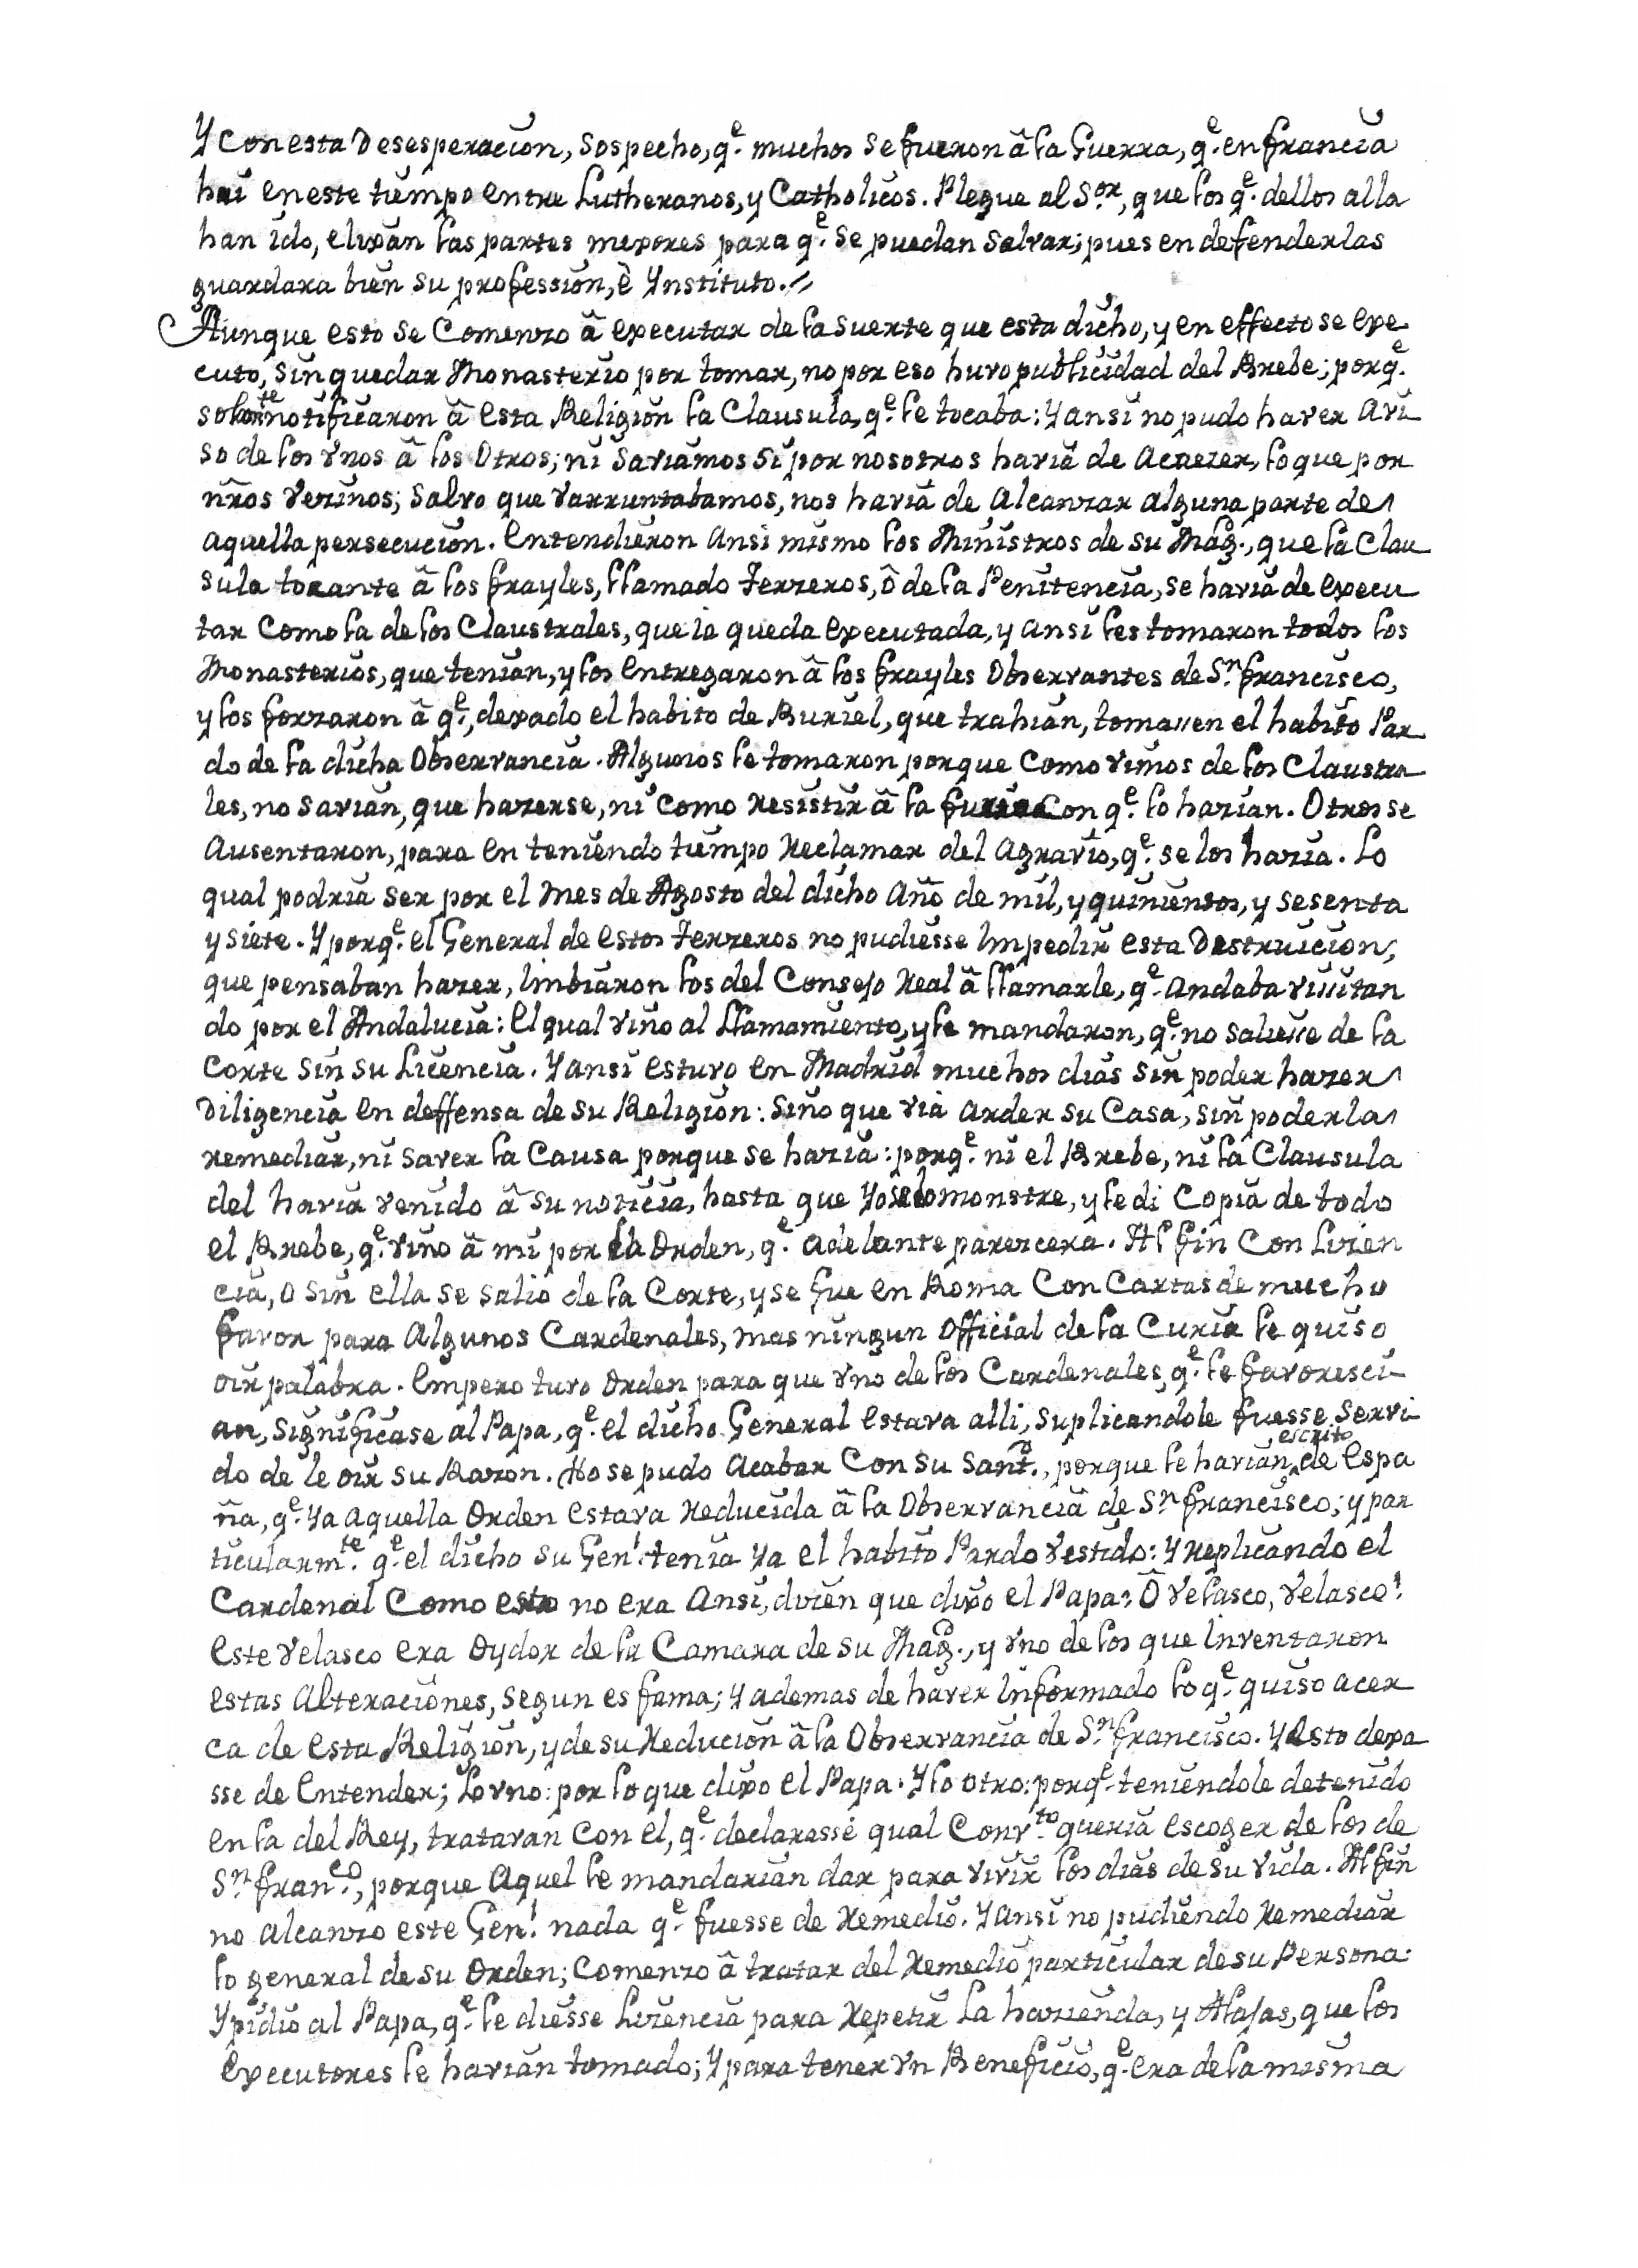 Y con esta Desesperacion, sospecho, q.e muchos se fueron â la Guerra, q.e en francia
hai en este tiempo entre Lutheranos, y Catholicos. Plegue al S.or, que los q.e dellos alla
han ido, elixan las partes mexores para q.e se puedan salvar; pues en defenderlas
guardara bien su profession, è Ynstituto.=
Aunque esto se Comenzo â executar de la suerte que esta dicho, y en effecto se exe
cuto, sin quedar Monasterio por tomar, no por eso huvo publicidad del Brebe; porq.e
solam.te notificaron â esta Religion la Clausula, q.e le tocaba: Y ansi no pudo haver avi
so de los Vnos â los Otros; ni Saviamos si por nosotros havia de Acaezer, lo que por
nr̃os Vezinos; Salvo que Varruntabamos, nos havia de Alcanzar alguna parte de
aquella persecucion. Entendieron Ansi mismo los Ministros de su Mag., que la Clau
sula tocante â los frayles, llamado Terzeros, ô de la Penitencia, se havia de execu
tar Como la de los Claustrales, que ia queda executada, y ansi les tomaron todos los
Monasterios, que tenian, y los entregaron â los frayles Observantes de S.n francisco,
y los forzaron â q.e, dexado el habito de Buriel, que trahian, tomassen el habito Par
do de la dicha Observancia. Algunos le tomaron porque Como vimos de los Claustra
les, no Savian, que hazerse, ni como resistir â la furia Con q.e lo hazian. Otros se
Ausentaron, para en teniendo tiempo reclamar del Agravio, q.e se los hazia. Lo
qual podria ser por el mes de Agosto del dicho Año de mil, y quinientos, y sesenta
y siete. Y porq.e el General de estos Terzeros no pudiesse Impedir esta Destruicion,
que pensaban hazer, Imbiaron los del Consejo Real â llamarle, q.e andaba visitan
do por el Andalucia: El qual vino al Llamamiento, y le mandaron, q.e no saliesse de la
Corte sin su Licencia. Y ansi estuvo en Madrid muchos dias sin poder hazer
Diligencia en deffensa de su Religion: Sino que via arder su Casa, sin poderla
remediar, ni saver la Causa porque se hazia: porq.e ni el Brebe, ni la Clausula
del havia venido â su noticia, hasta que Yo se lo monstre, y le di Copia de todo
el Brebe, q.e vino â mi por la Orden, q.e adelante parezcera. Al fin Con Lizen
cia, o sin ella se salio de la Corte, y se fue en Roma Con Cartas de mucho
favor para Algunos Cardenales, mas ningun Official de la Curia le quiso
oir palabra. Empero tuvo Orden para que Vno de los Cardenales, q.e le favoresci
an, significase al Papa, q.e el dicho General estava alli, suplicandole fuesse servi
do de le oir su Razon. No se pudo Acabar Con su Sant.d, porque le havian escrito de Espa
ña, q.e Ya aquella Orden estava Reducida â la Observancia de S.n francisco; y par
ticularm.te q.e el dicho su Gen.l tenia Ya el habito Pardo vestido: Y replicando el
Cardenal Como esto no era Ansi, dizen que dixo el Papa: Ô Velasco, Velasco!
Este Velasco era Oydor de la Camara de su Mag., y Vno de los que Inventaron
estas Alteraciones, segun es fama; Y ademas de haver Informado lo q.e quiso acer
ca de esta Religion, y de su Reducion â la Observancia de S.n francisco. Y esto dexa
sse de Entender; Lo vno: por lo que dixo el Papa. Y lo otro: porq.e teniendole detenido
en la del Rey, tratavan Con el, q.e declarasse qual Conv.to queria escoger de los de
S.n fran.co, porque Aquel le mandarian dar para vivir los dias de su vida. Al fin
no Alcanzo este Gen.l nada q.e fuesse de Remedio. Y ansi no pudiendo remediar
lo general de su Orden; Comenzo â tratar del Remedio particular de su Persona:
Y pidio al Papa, q.e le diesse Lizencia para repetir la hazienda, y Alajas, que los
Executores le havian tomado; Y para tener vn Beneficio, q.e era de la misma